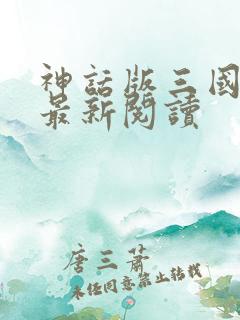 神話版三國
最新閱讀
唐三蕭
未经同意禁止转载